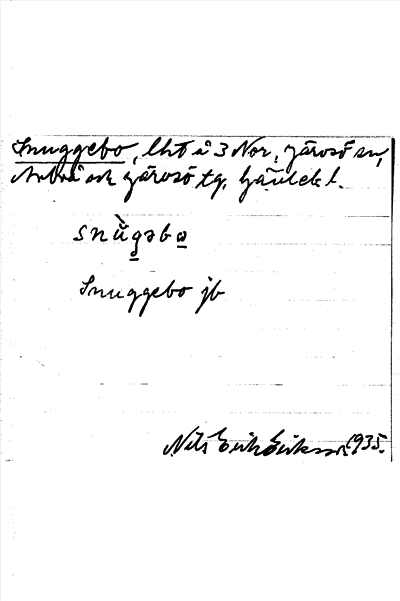 Snuggebo, lht å 3 Nor, Färösö sn,
Norbrå och Färösö tg,
snùgəbo
Snuggebo jb
Nils Erik Eriksson 1935.